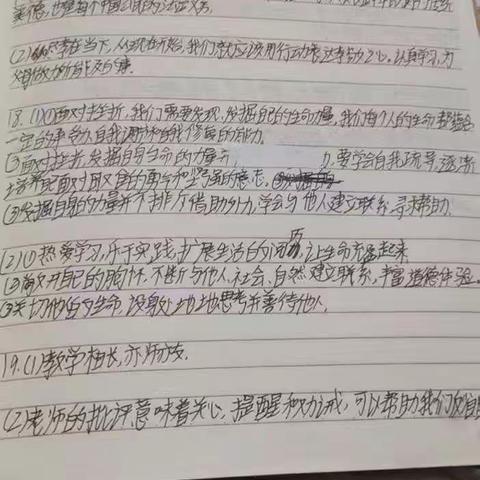 美德,也是每个中国公民的法定义务。
(2)孝在当下,从现在开始,我们就应该用行动表达孝敬之心。认真学习,为
18.(1)①面对挫折,我们需要发现、发掘自己的生命力量,我们每个人的生命都蕴含
一定的承受力、自我调节和自我修复的能力。
②面对挫折,发掘自身生命的力量,要学会自我疏导,逐渐
培养起面对困难的勇气和坚强的意志。
③发掘自身的力量并不排斥借助外力,学会与他人建立联系、寻求帮助。
(2)①热爱学习,乐于实践,扩展生活的阅历,让生命充盈起来
②敞开自己的胸怀,不断与他人、社会、自然建立联系,丰富道德体验。
③关切他人的生命,设身处地地思考并善待他人。
19.(1)教学相长,亦师亦友。
(2)老师的批评意味着关心、提醒和劝诫,可以帮助我们